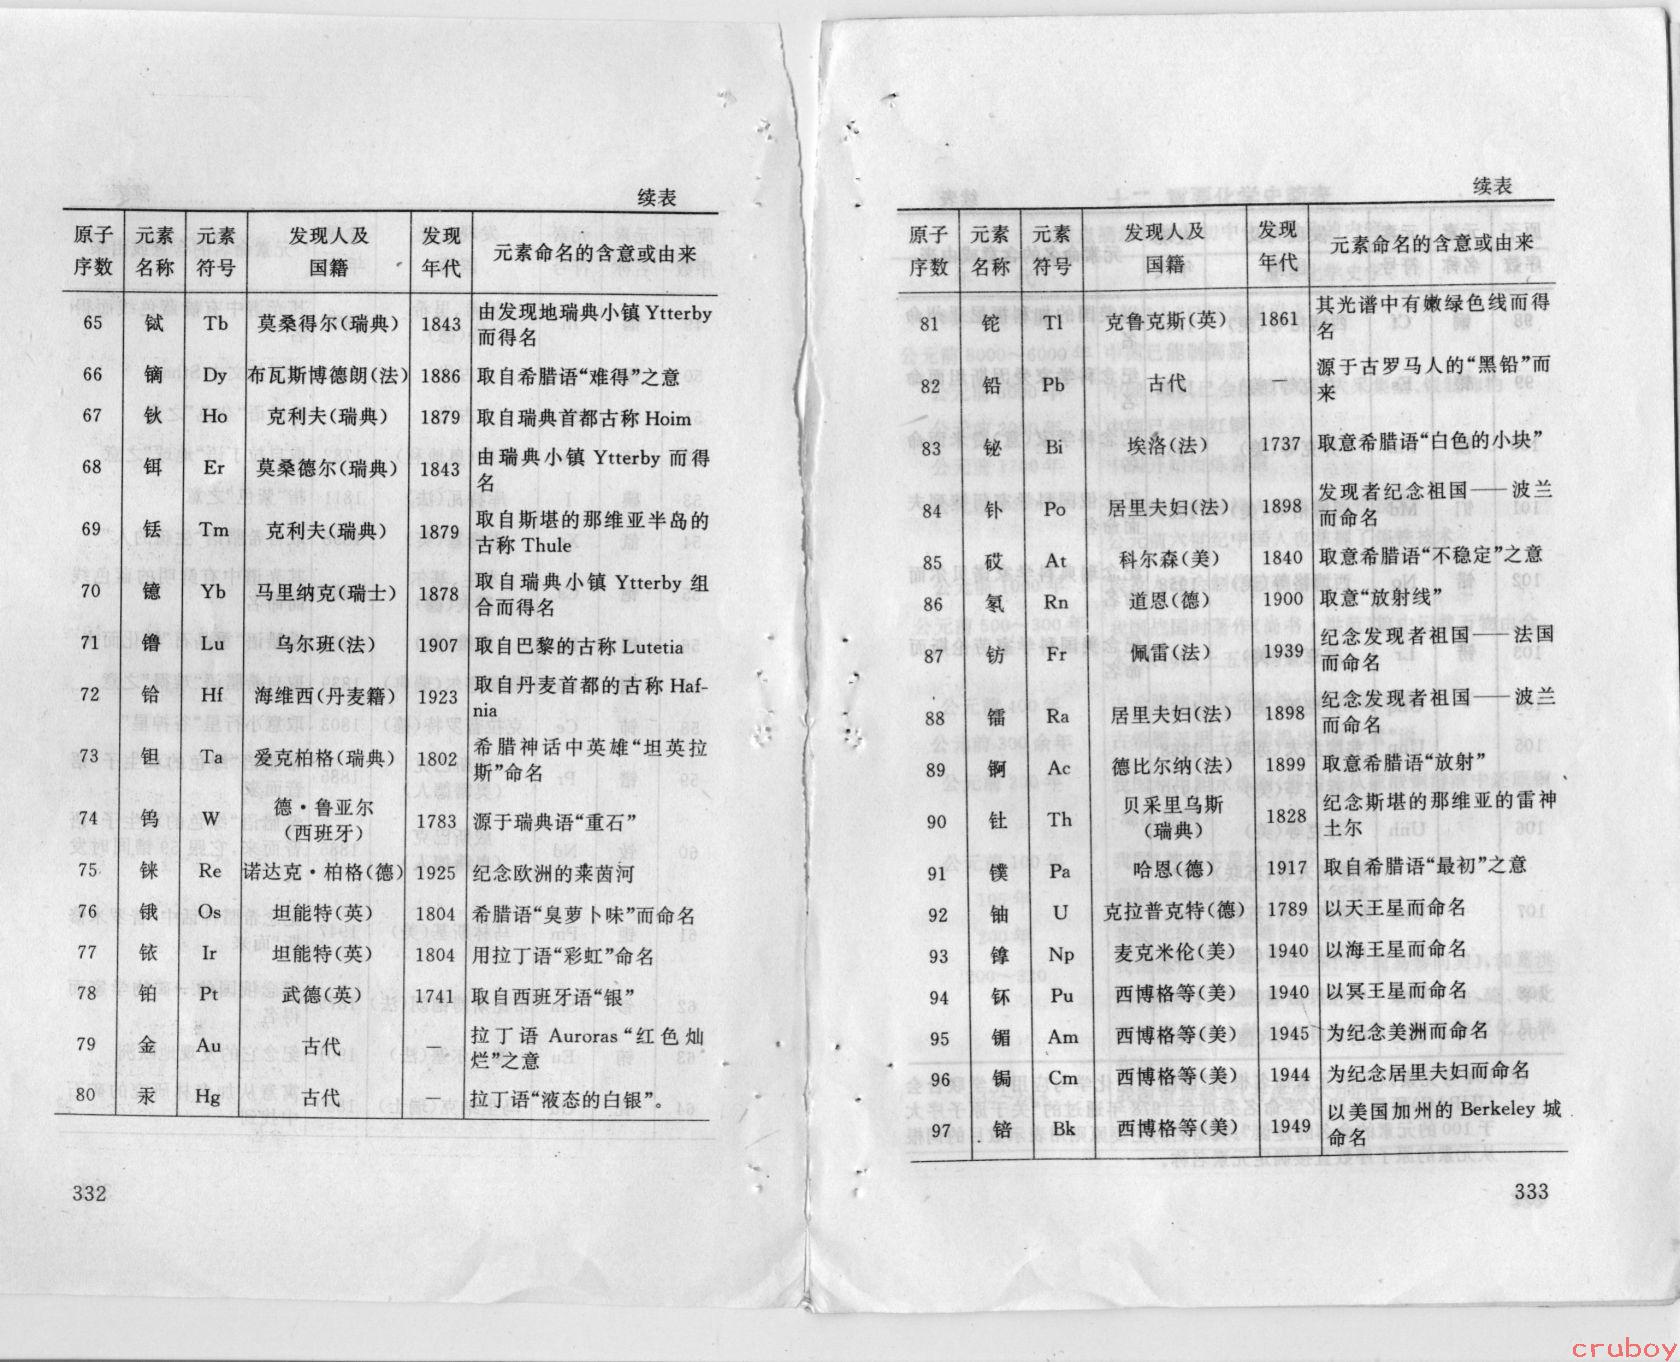 续表
原子 元素 元素 发现人及 发现 元素命名的含意或由来
序数 名称 符号 国籍 年代
65 铽 Tb 莫桑得尔(瑞典) 1843 由发现地瑞典小镇 Ytterby
而得名
66 镝 Dy 布瓦斯博德朗(法) 1886 取自希腊语“难得”之意
67 钬 Ho 克利夫(瑞典) 1879 取自瑞典首都古称 Hoim
68 铒 Er 莫桑德尔(瑞典) 1843 由瑞典小镇 Ytterby 而得
名
69 铥 Tm 克利夫(瑞典) 1879 取自斯堪的那维亚半岛的
古称 Thule
70 镱 Yb 马里纳克(瑞士) 1878 取自瑞典小镇 Ytterby 组
合而得名
71 镥 Lu 乌尔班(法) 1907 取自巴黎的古称 Lutetia
72 铪 Hf 海维西(丹麦籍) 1923 取自丹麦首都的古称 Haf-
nia
73 钽 Ta 爱克柏格(瑞典) 1802 希腊神话中英雄“坦英拉
斯”命名
74 钨 W 德·鲁亚尔
(西班牙) 1783 源于瑞典语“重石”
75 铼 Re 诺达克·柏格(德) 1925 纪念欧洲的莱茵河
76 锇 Os 坦能特(英) 1804 希腊语“臭萝卜味”而命名
77 铱 Ir 坦能特(英) 1804 用拉丁语“彩虹”命名
78 铂 Pt 武德(英) 1741 取自西班牙语“银”
79 金 Au 古代 — 拉丁语 Auroras“红色灿
烂”之意
80 汞 Hg 古代 — 拉丁语“液态的白银”。
332
续表
原子 元素 元素 发现人及 发现 元素命名的含意或由来
序数 名称 符号 国籍 年代
81 铊 Tl 克鲁克斯(英) 1861 其光谱中有嫩绿色线而得
名
82 铅 Pb 古代 — 源于古罗马人的“黑铅”而
来
83 铋 Bi 埃洛(法) 1737 取意希腊语“白色的小块”
84 钋 Po 居里夫妇(法) 1898 发现者纪念祖国——波兰
而命名
85 砹 At 科尔森(美) 1840 取意希腊语“不稳定”之意
86 氡 Rn 道恩(德) 1900 取意“放射线”
87 钫 Fr 佩雷(法) 1939 纪念发现者祖国——法国
而命名
88 镭 Ra 居里夫妇(法) 1898 纪念发现者祖国——波兰
而命名
89 锕 Ac 德比尔纳(法) 1899 取意希腊语“放射”
90 钍 Th 贝采里乌斯
(瑞典) 1828 纪念斯堪的那维亚的雷神
土尔
91 镤 Pa 哈恩(德) 1917 取自希腊语“最初”之意
92 铀 U 克拉普克特(德) 1789 以天王星而命名
93 镎 Np 麦克米伦(美) 1940 以海王星而命名
94 钚 Pu 西博格等(美) 1940 以冥王星而命名
95 镅 Am 西博格等(美) 1945 为纪念美洲而命名
96 锔 Cm 西博格等(美) 1944 为纪念居里夫妇而命名
97 锫 Bk 西博格等(美) 1949 以美国加州的 Berkeley 城
命名
333
cruboy